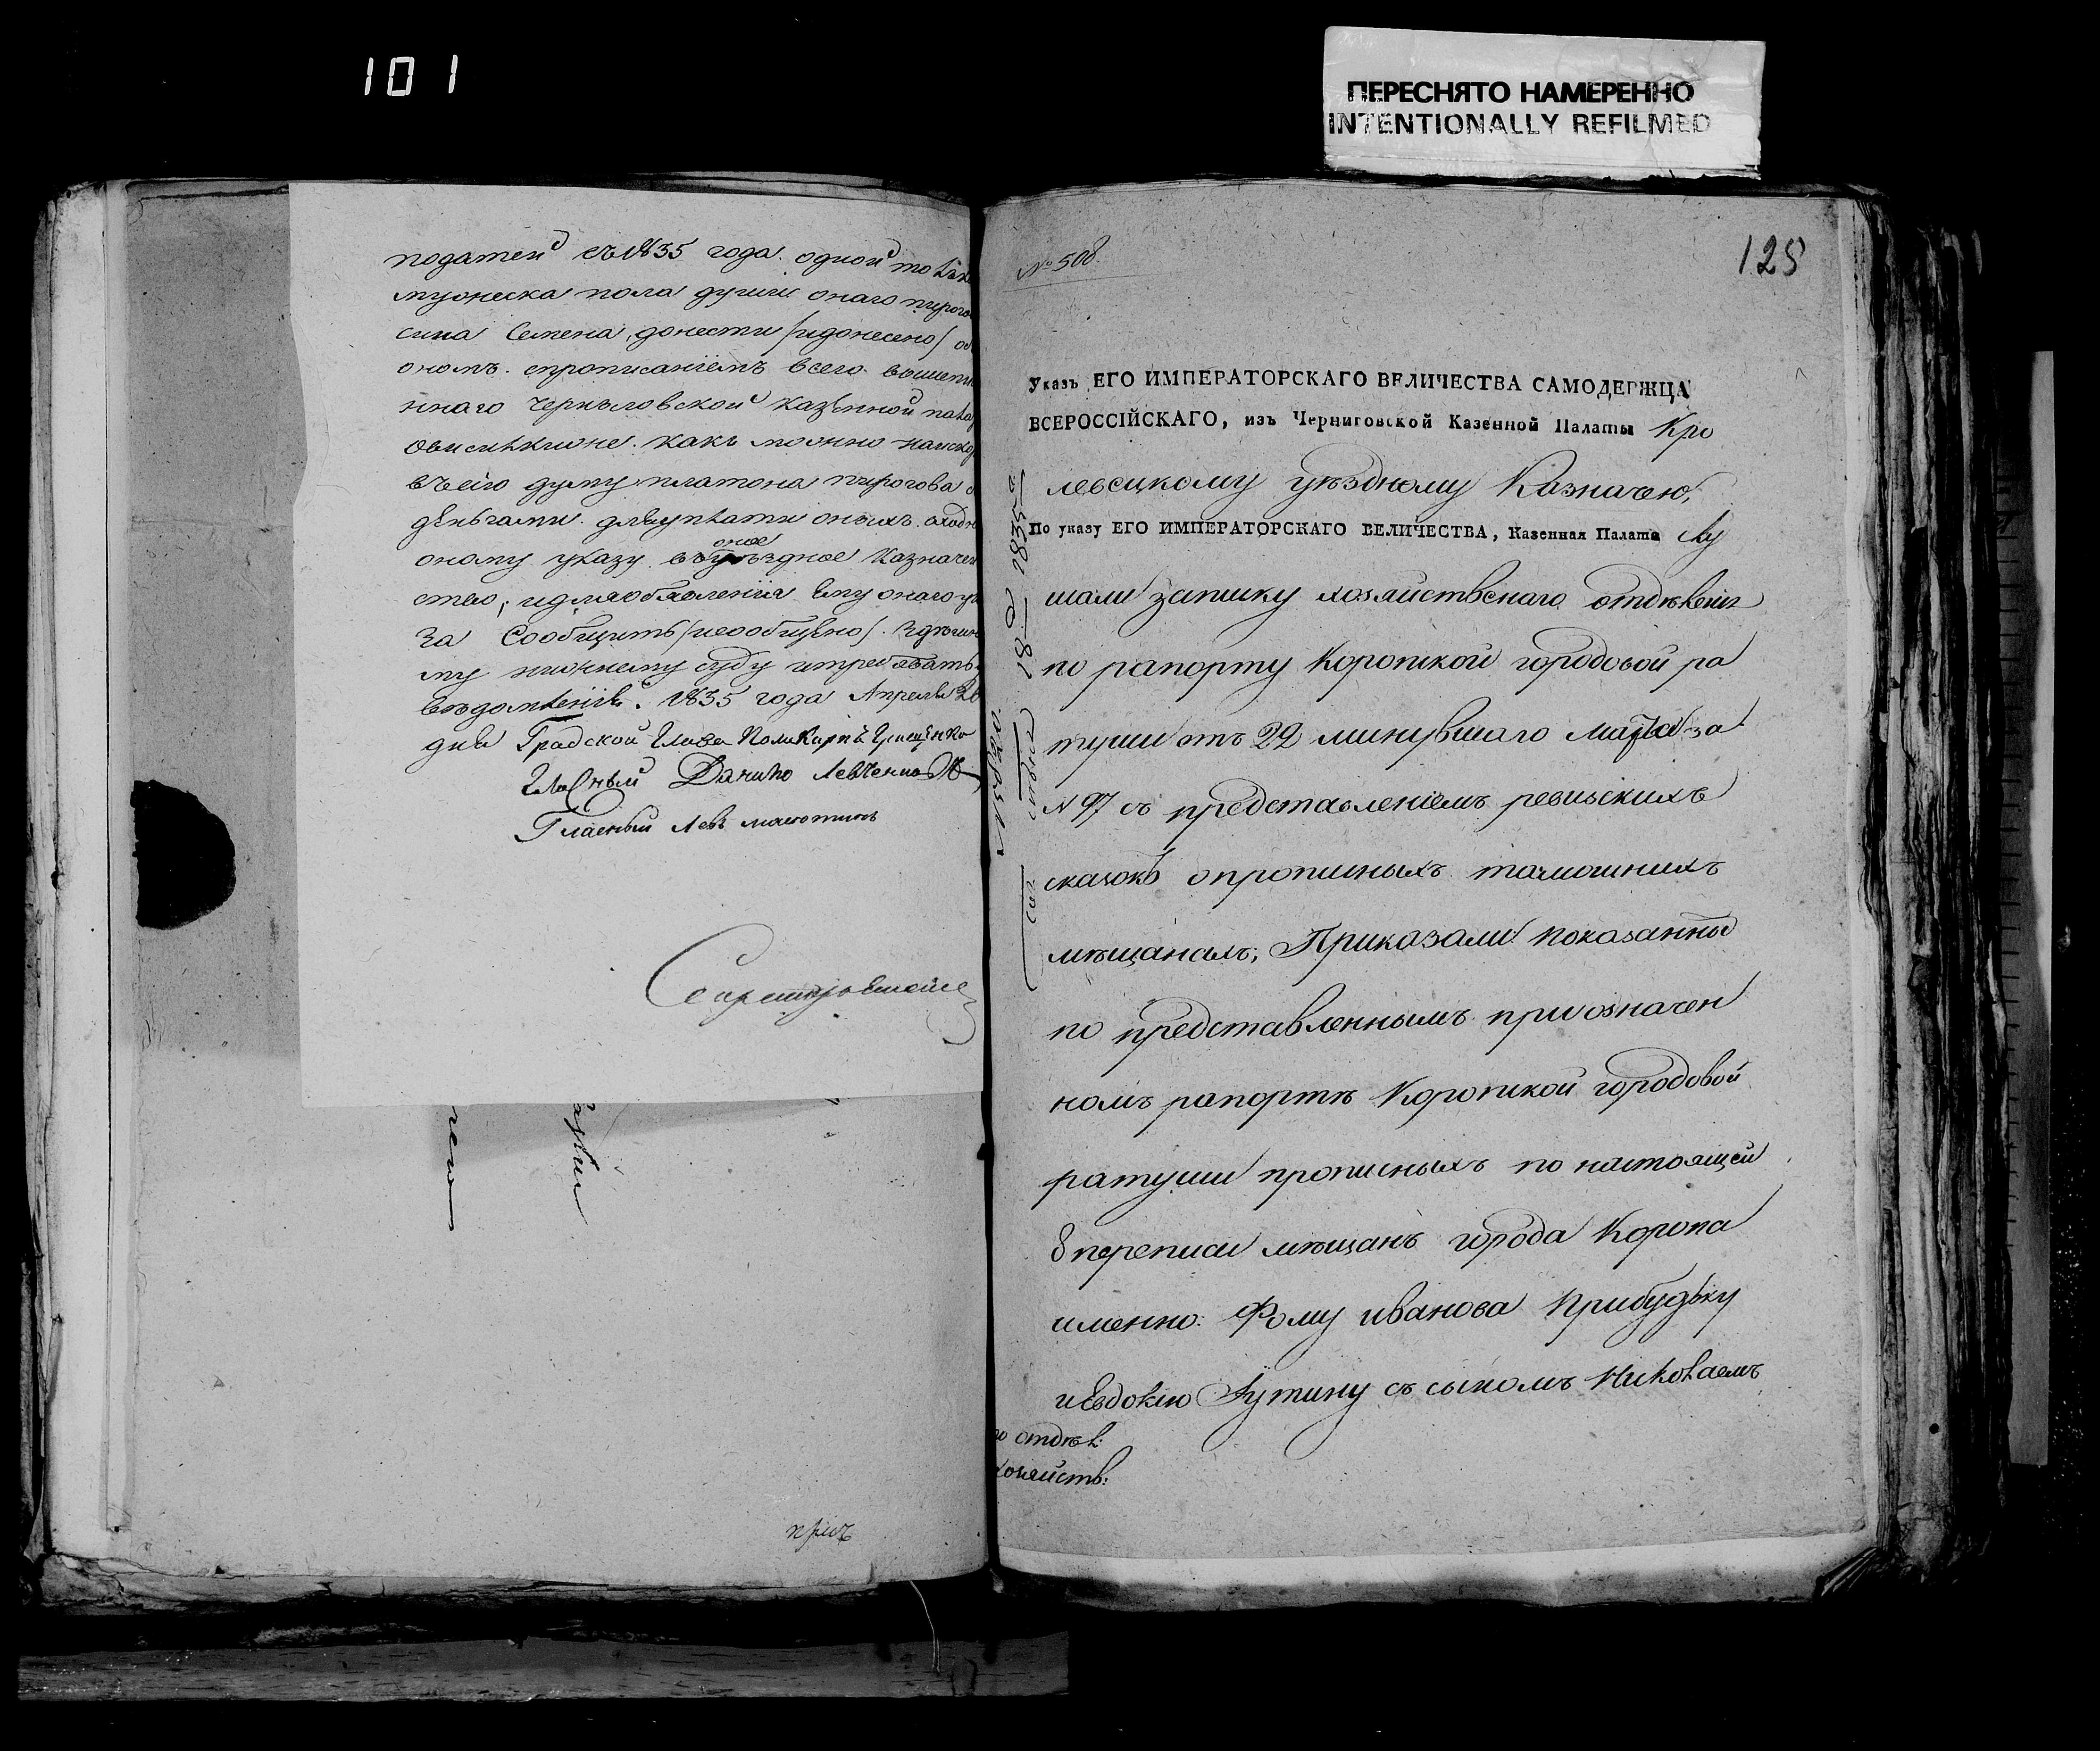 101
ПЕРЕСНЯТО НАМЕРЕННО
INTENTIONALLY REFILMED
податей съ 1835 года одной только
мужеска пола души онаго пирого
сина Семена, донести /идонесено/ об
ономъ спрописаніемъ всего вышепи
ннаго Черниговской казенной пала
какъ можно наискор
въ сію думу платона пирогова с
деньгами для уплати оныхъ
оное
оному указу въ уѣздное Казначей
ство, и для обявленія ему онаго ука
за Сообщить /исообщено/ Здешне
му нижнему суду и требовать у
ведомленія. 1835 года Апреля 26
дня Градской Глава Поликарпъ Грищенко
Гласный Данило Левченко
Гласный Левъ
призъ
№ 508
125
Указъ ЕГО ИМПЕРАТОРСКАГО ВЕЛИЧЕСТВА САМОДЕРЖЦА
ВСЕРОССІЙСКАГО, изъ Черниговской Казенной Палаты Кро
левецкому уѣздному Казначею.
По указу ЕГО ИМПЕРАТОРСКАГО ВЕЛИЧЕСТВА, Казенная Палата Слу
шали записку хозяйственаго отдѣленія
по рапорту Коропской городовой ра
туши отъ 22 минувшаго Марта за
N 97 съ представленіемъ ревизскихъ
сказокъ опрописныхъ тамошнихъ
мѣщанахъ; Приказали показанныхъ
по представленнымъ приозначен
номъ рапортѣ Коропской городовой
ратуши прописныхъ по настоящей
8 переписи мѣщанъ города Коропа
именно: Фому иванова Прибудьку
и Евдокию Гутину съ сыномъ Николаемъ
по отдѣл:
хозяйств: